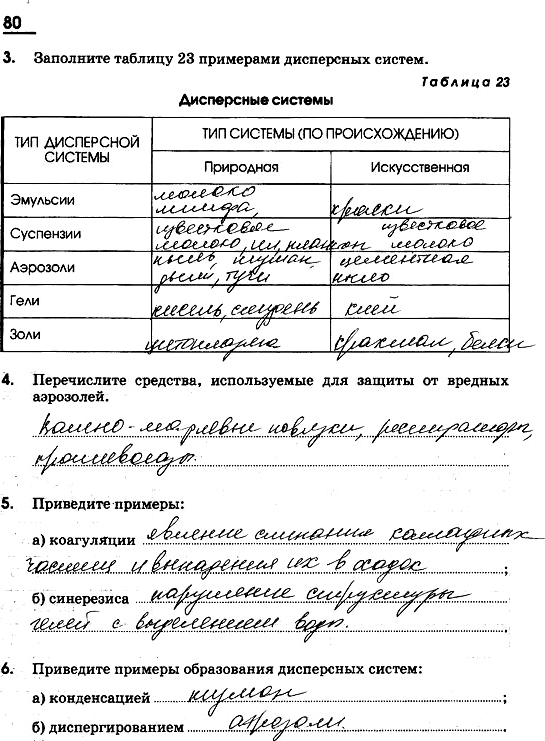 80
3. Заполните таблицу 23 примерами дисперсных систем.
Таблица 23
Дисперсные системы
ТИП ДИСПЕРСНОЙ СИСТЕМЫ
ТИП СИСТЕМЫ (ПО ПРОИСХОЖДЕНИЮ)
Природная Искусственная
Эмульсии молоко лимфа, краски
Суспензии известковое молоко, ил, планктон известковое молоко
Аэрозоли пыль, туман, дым, тучи цементная пыль
Гели кисель, студень клей
Золи цитоплазма крахмал, белки
4. Перечислите средства, используемые для защиты от вредных
аэрозолей.
Ватно-марлевые повязки, респираторы,
противогазы.
5. Приведите примеры:
а) коагуляции явление слипания коллоидных
частиц и выпадения их в осадок ;
б) синерезиса нарушение структуры
гелей с выделением воды.
6. Приведите примеры образования дисперсных систем:
а) конденсацией туман ;
б) диспергированием аэрозоли.